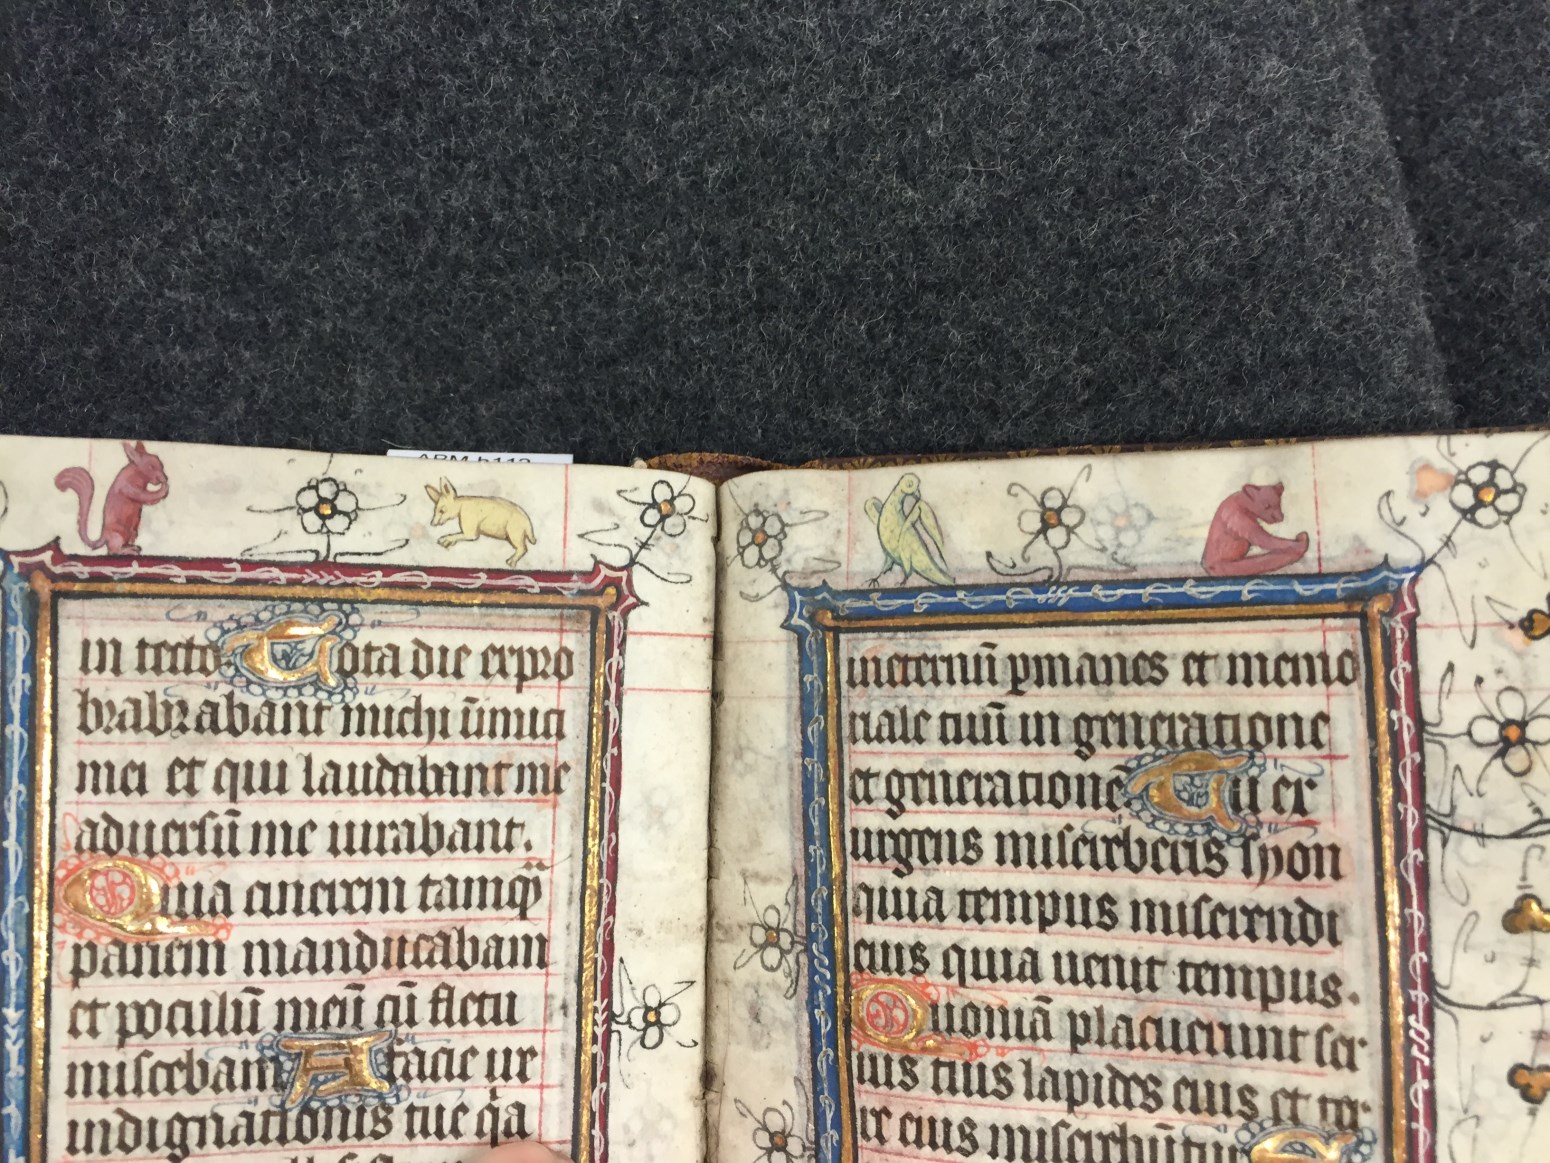 ABM h112
in tecto Tota die expro
brabāt abant michi inimici
mei et qui laudabant me
aduersū me iurabant.
Quia cinerem tamq̄
panem manducabam
et poculū meū cū fletu
miscebam A facie ire
indignationis tue q̄a
ineternū pmanes et memo
riale tuū in generatione
et generationē Tu ex
urgens misereberis syon
quia tempus miserendi
eius quia uenit tempus.
Quoniā placuerunt ser
uis tuis lapides eius et ter
re eius miserebūtur